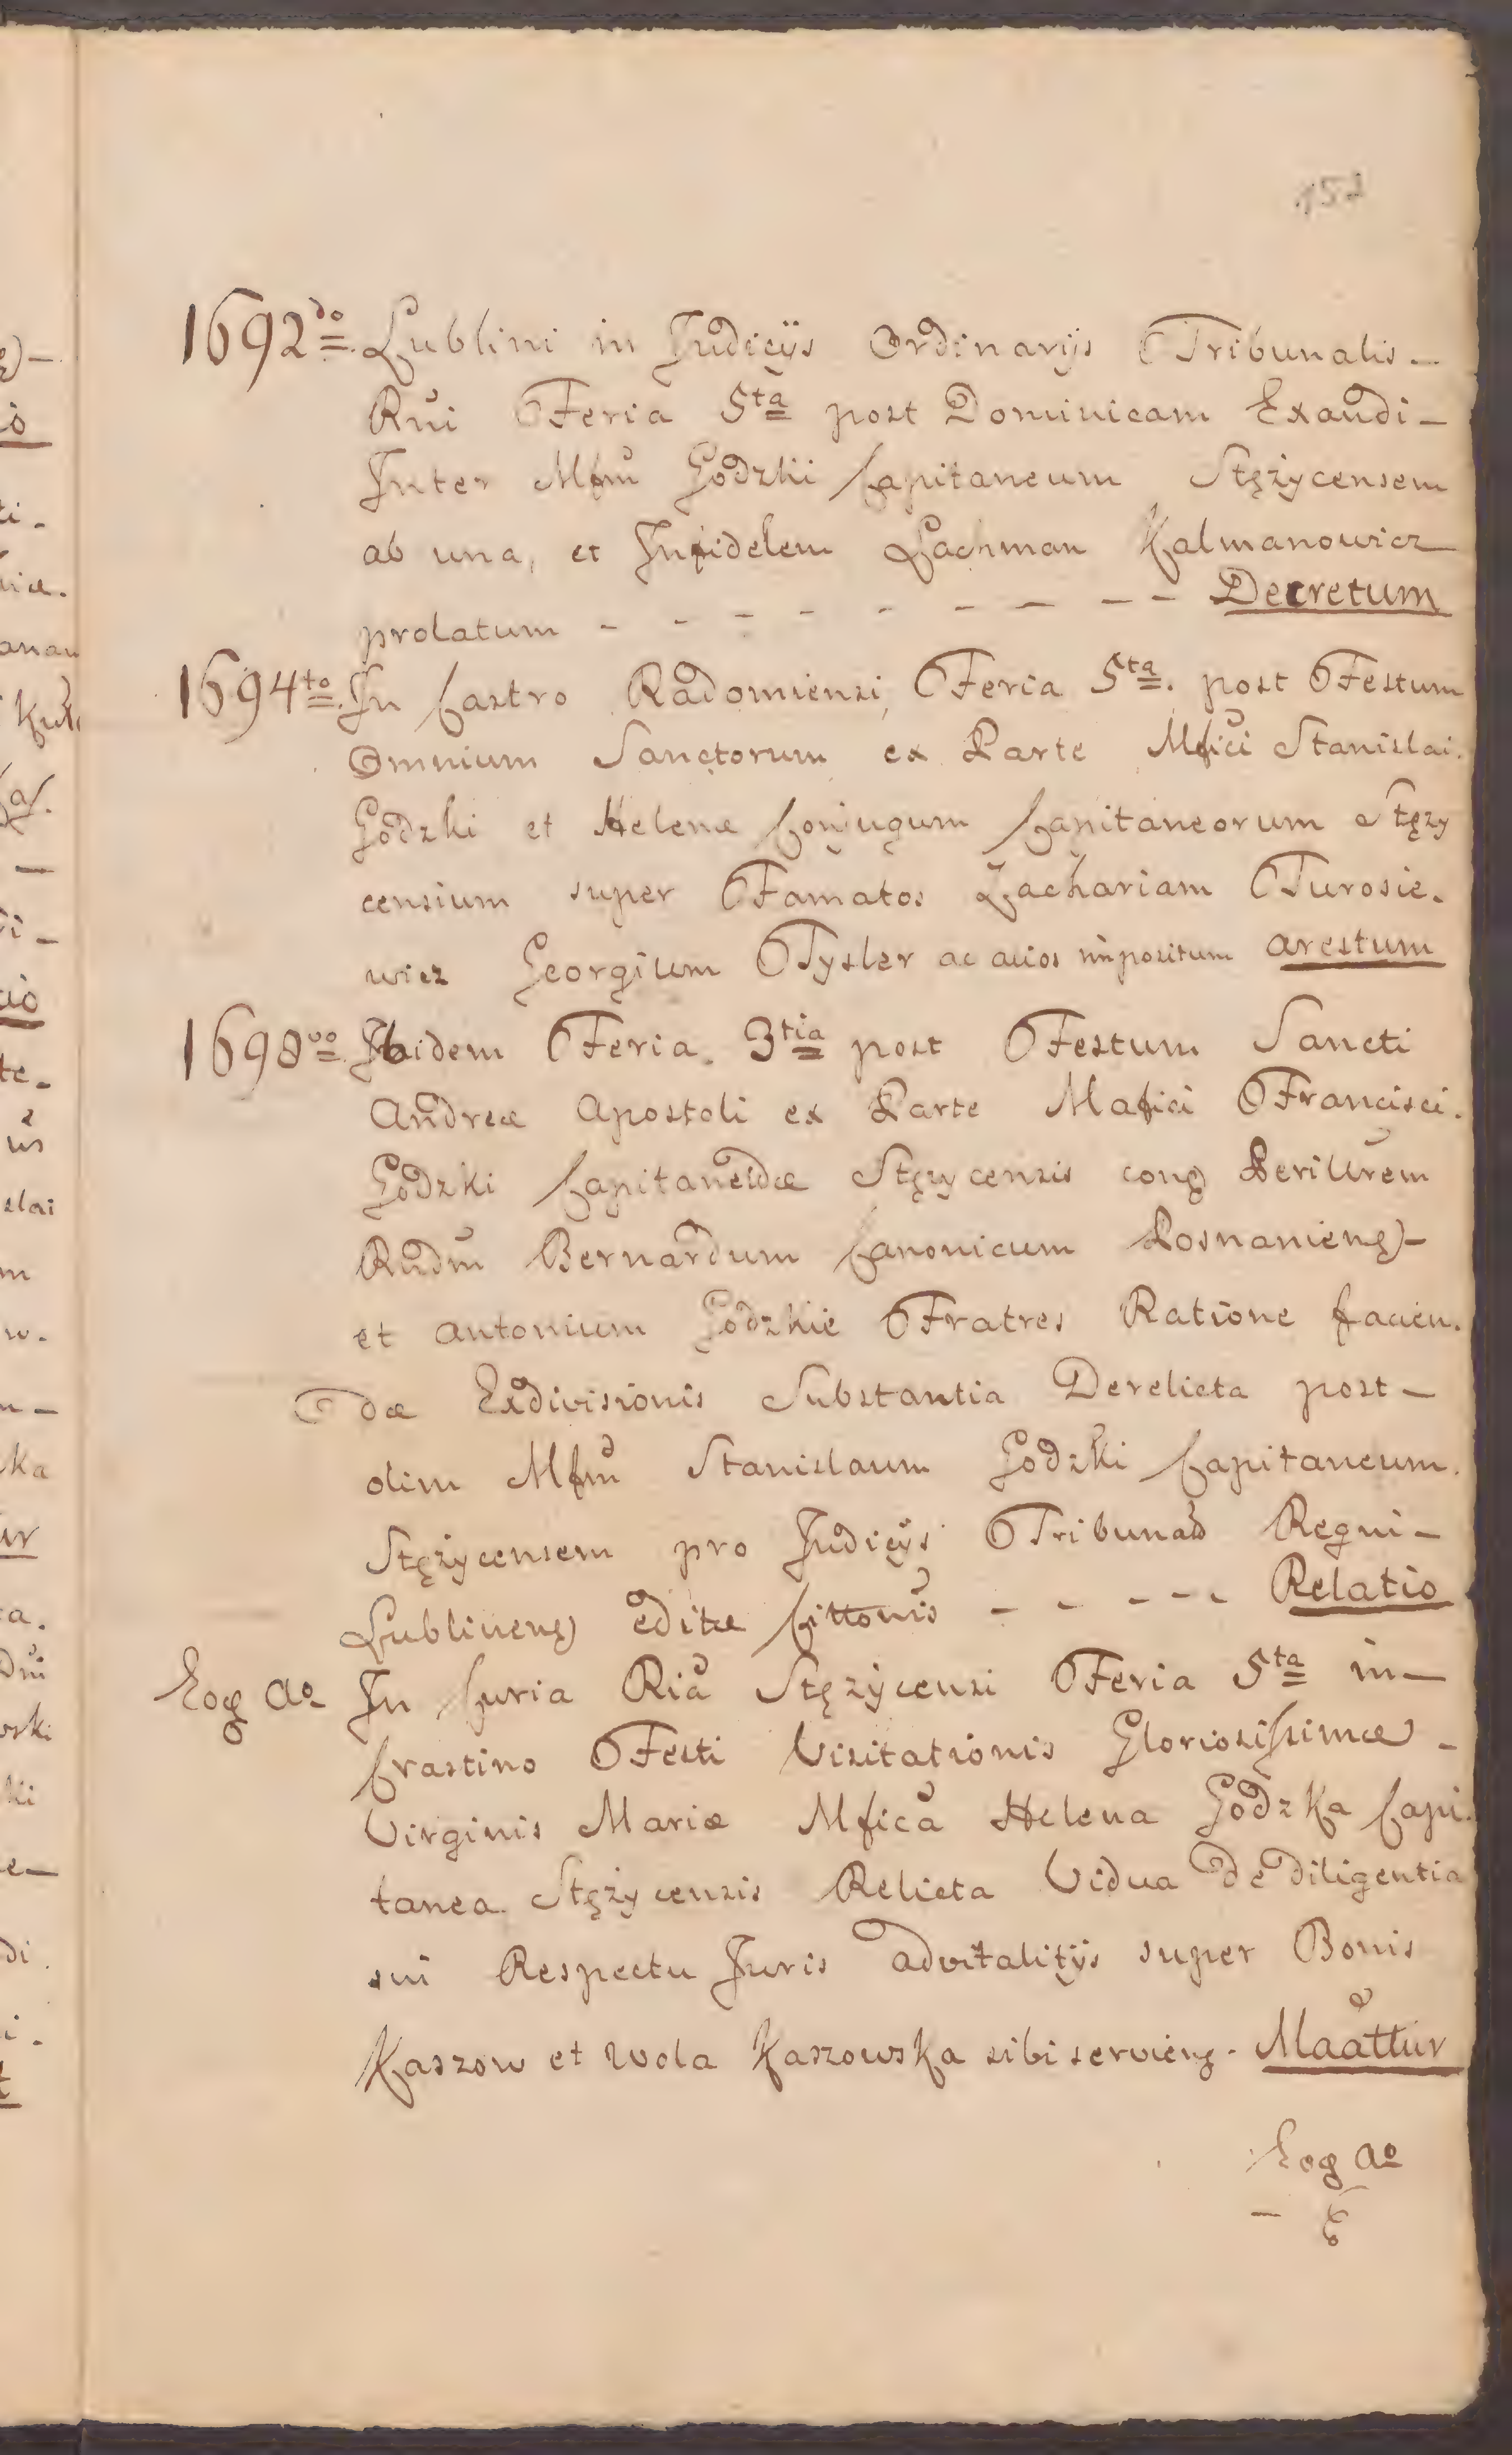 152
1692do Lublini in Judicijs Ordinarijs Tribunalis –
Rni Feria 5ta post Dominicam Exaudi –
Inter Mfm Godzki Capitaneum Stężycensem
ab una, et Infidelem Lachman Kalmanowicz
prolatum - - - - - - - - Decretum
1694to In Castro Radomiensi, Feria 5ta. post Festum
Omnium Sanctorum ex Parte Mfici Stanislai.
Godzki et Helenæ Conjugum Capitaneorum Stęzy
censium super Famatos Zachariam Turosie.
wicz Georgium Tysler ac alios impositum arestum
1698vo Ibidem Feria. 3tia post Festum Sancti
Andreæ Apostoli ex Parte Mafici Francisci.
Godzki Capitaneidæ Stęzycensis cong Perillrem
Rndm Bernardum Canonicum Posnanieng –
et Antonium Godzkie Fratres Ratione facien.
dæ Exdivisionis Substantia Derelicta post –
olim Mfm Stanislaum Godzki Capitaneum.
Stężycensem pro Judicijs Tribunal Regni –
Lublineng editæ Cittonis - - - - - Relatio
Eog Ao In Curia Ria Stężycensi Feria 5ta in –
Crastino Festi Visitationis Gloriosissimæ –
Virginis Mariæ Mfica Helena Godzka Capi.
tanea. Stężycensis Relicta Vidua de diligentia
sui Respectu Juris advitalitijs super Bonis
Kaszow et Wola Kaszowska sibi servieng. Maattur
Eog Ao
–